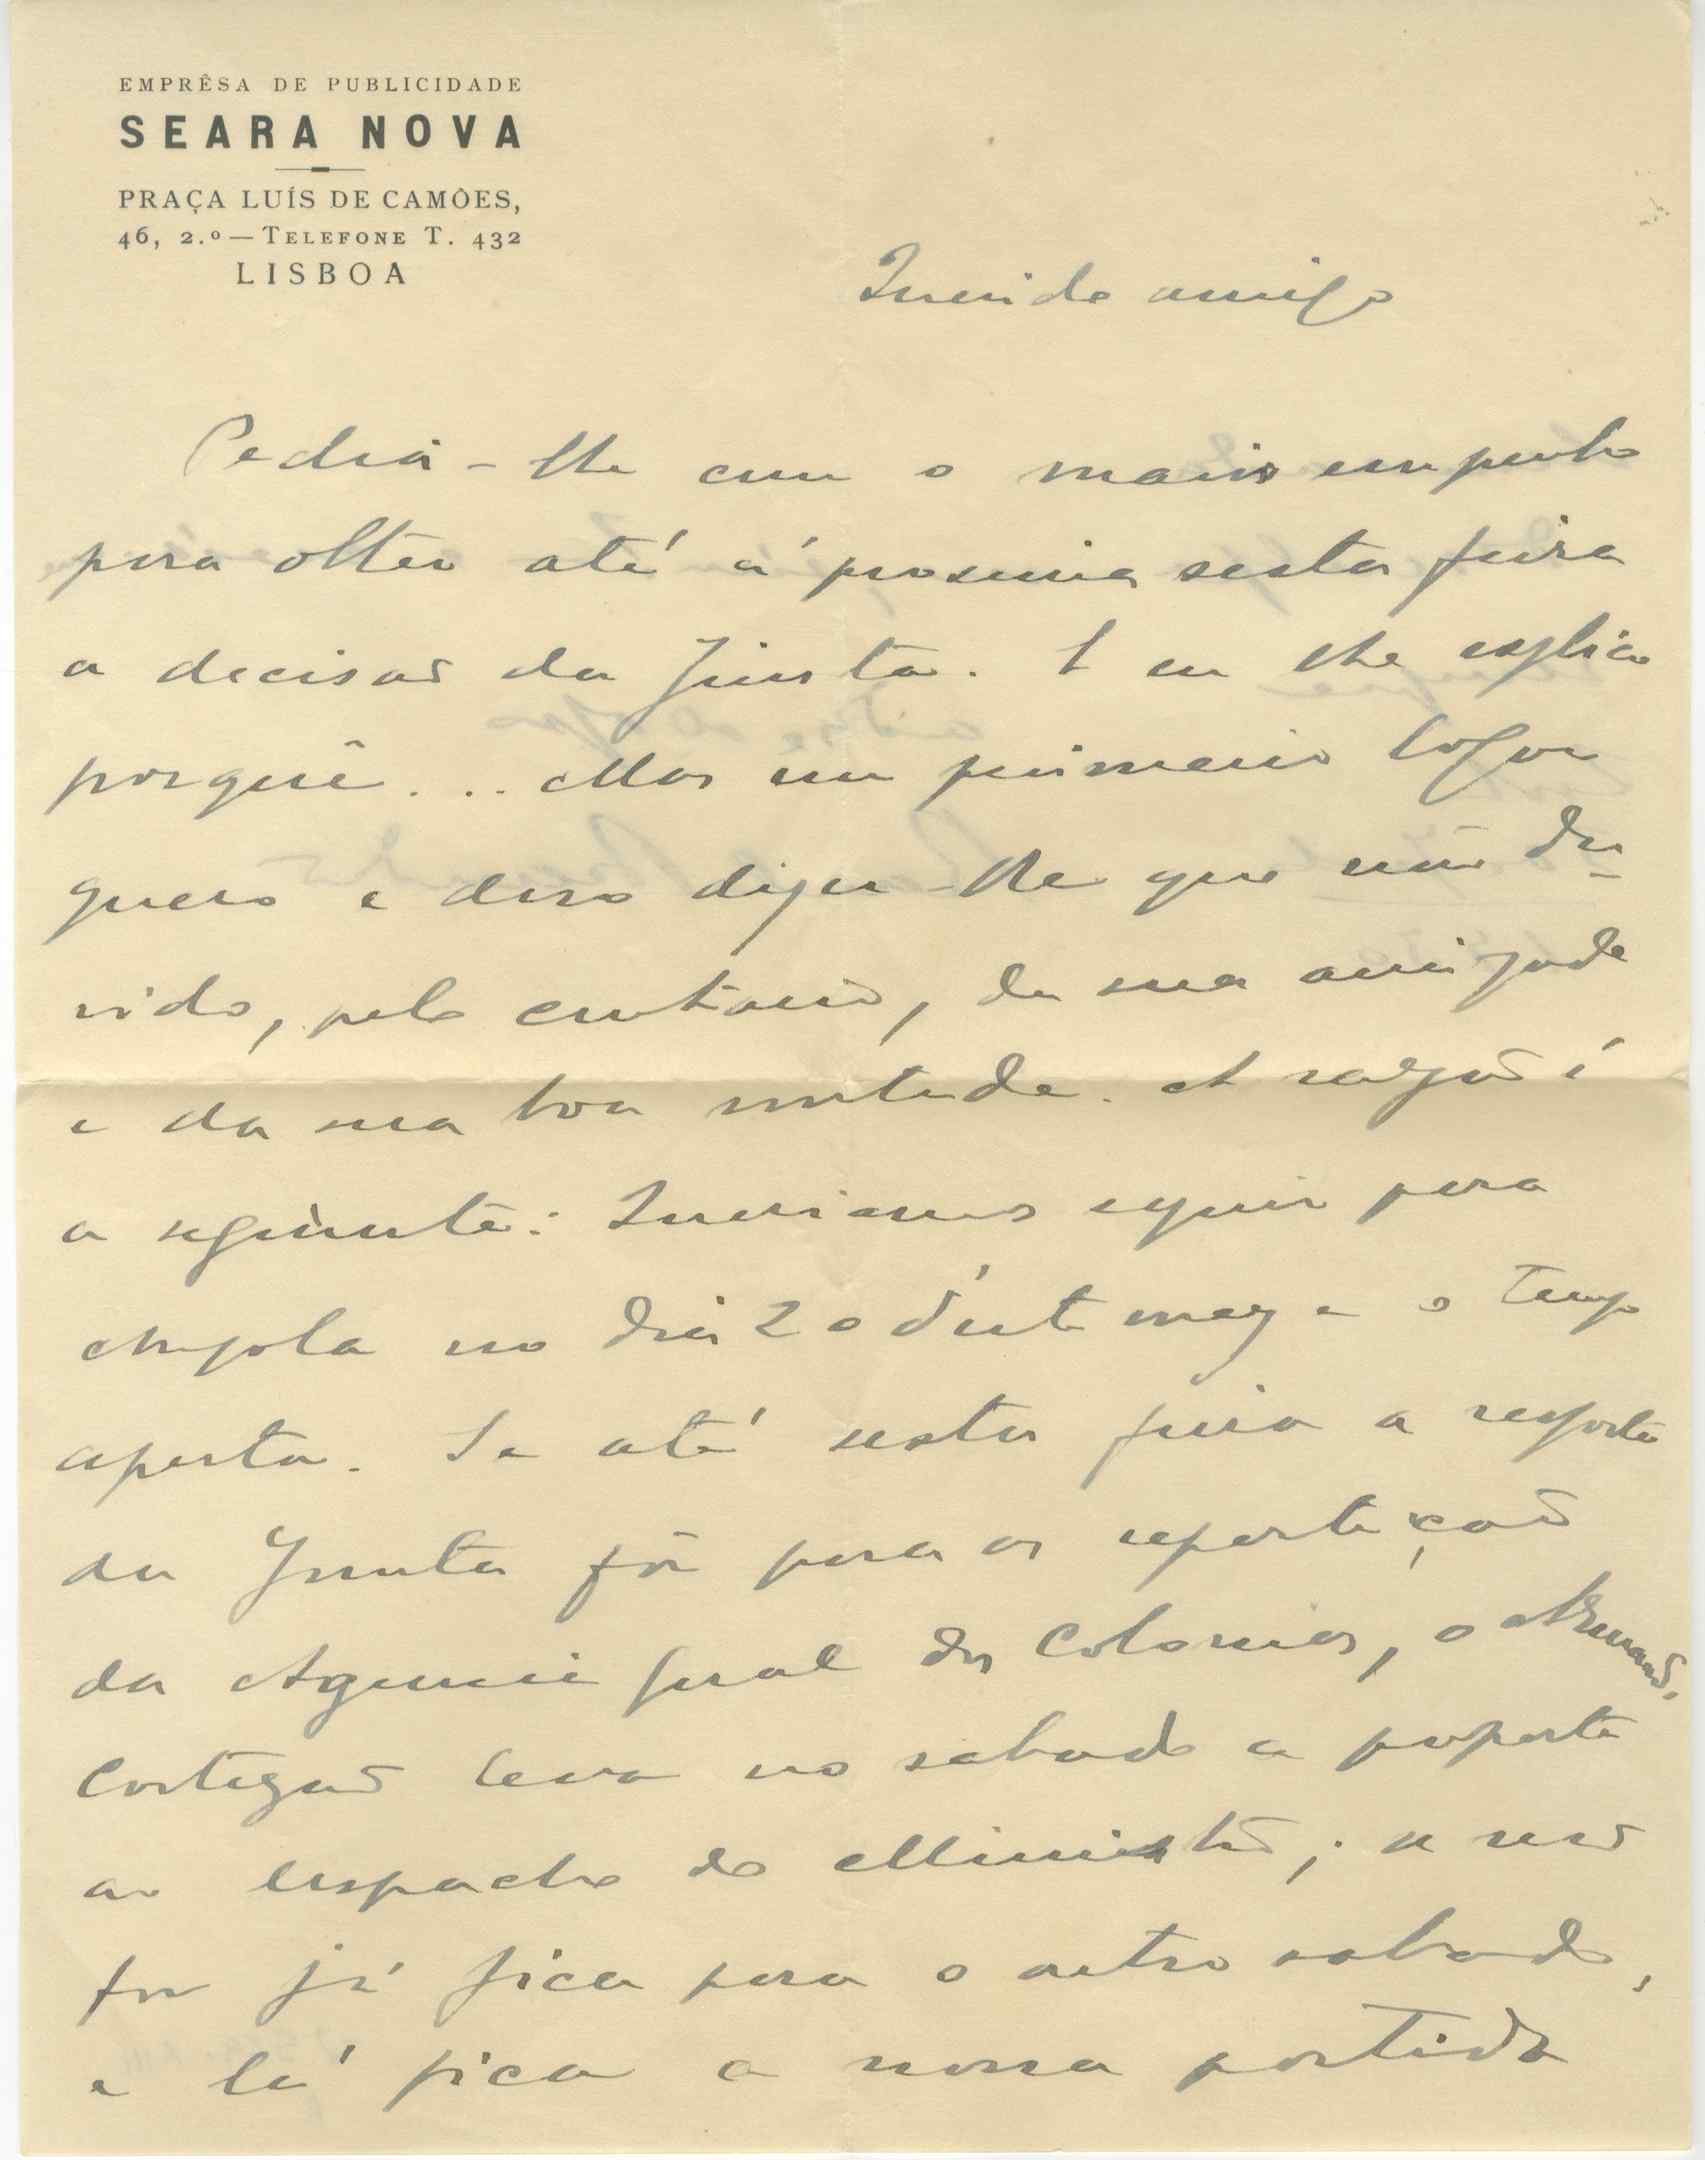 EMPRÊSA DE PUBLICIDADE
SEARA NOVA
PRAÇA LUÍS DE CAMÕES,
46, 2.º — TELEFONE T. 432
LISBOA
Querido amigo
Pedia-lhe com o maior empenho
para obter até á proxima sexta feira
a decisão da Junta. E eu lhe explico
porquê... Mas em primeiro logar
quero e devo dizer-lhe que não du-
vido, pelo contrario, da sua amizade
e da sua boa vontade. A razão é
a seguinte: Queriamos seguir para
Angola no dia 20 d'este mez e o tempo
aperta. Se até sexta feira a resposta
da Junta fôr para a repartição
da Agencia Geral das Colonias, o Armando
Cortezão leva no sabado a proposta
ao despacho do Ministro; se não
for já fica para o outro sabado,
e lá fica a nossa partida